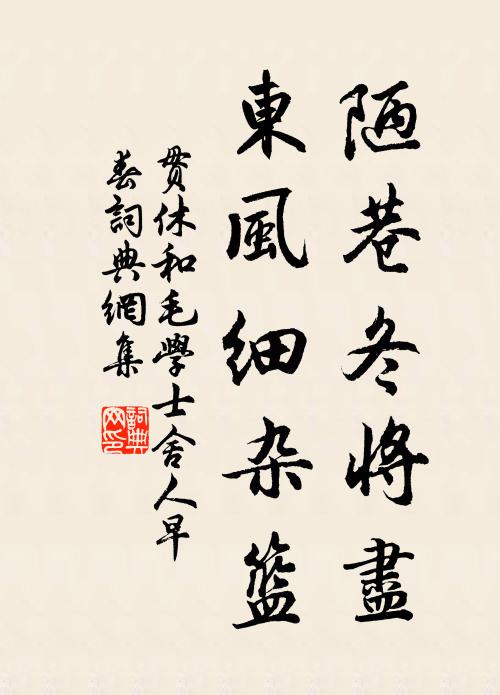 陋巷冬將盡
東風細杂籃
貫休和毛學士舍人早
春詞典網集
詞典网印